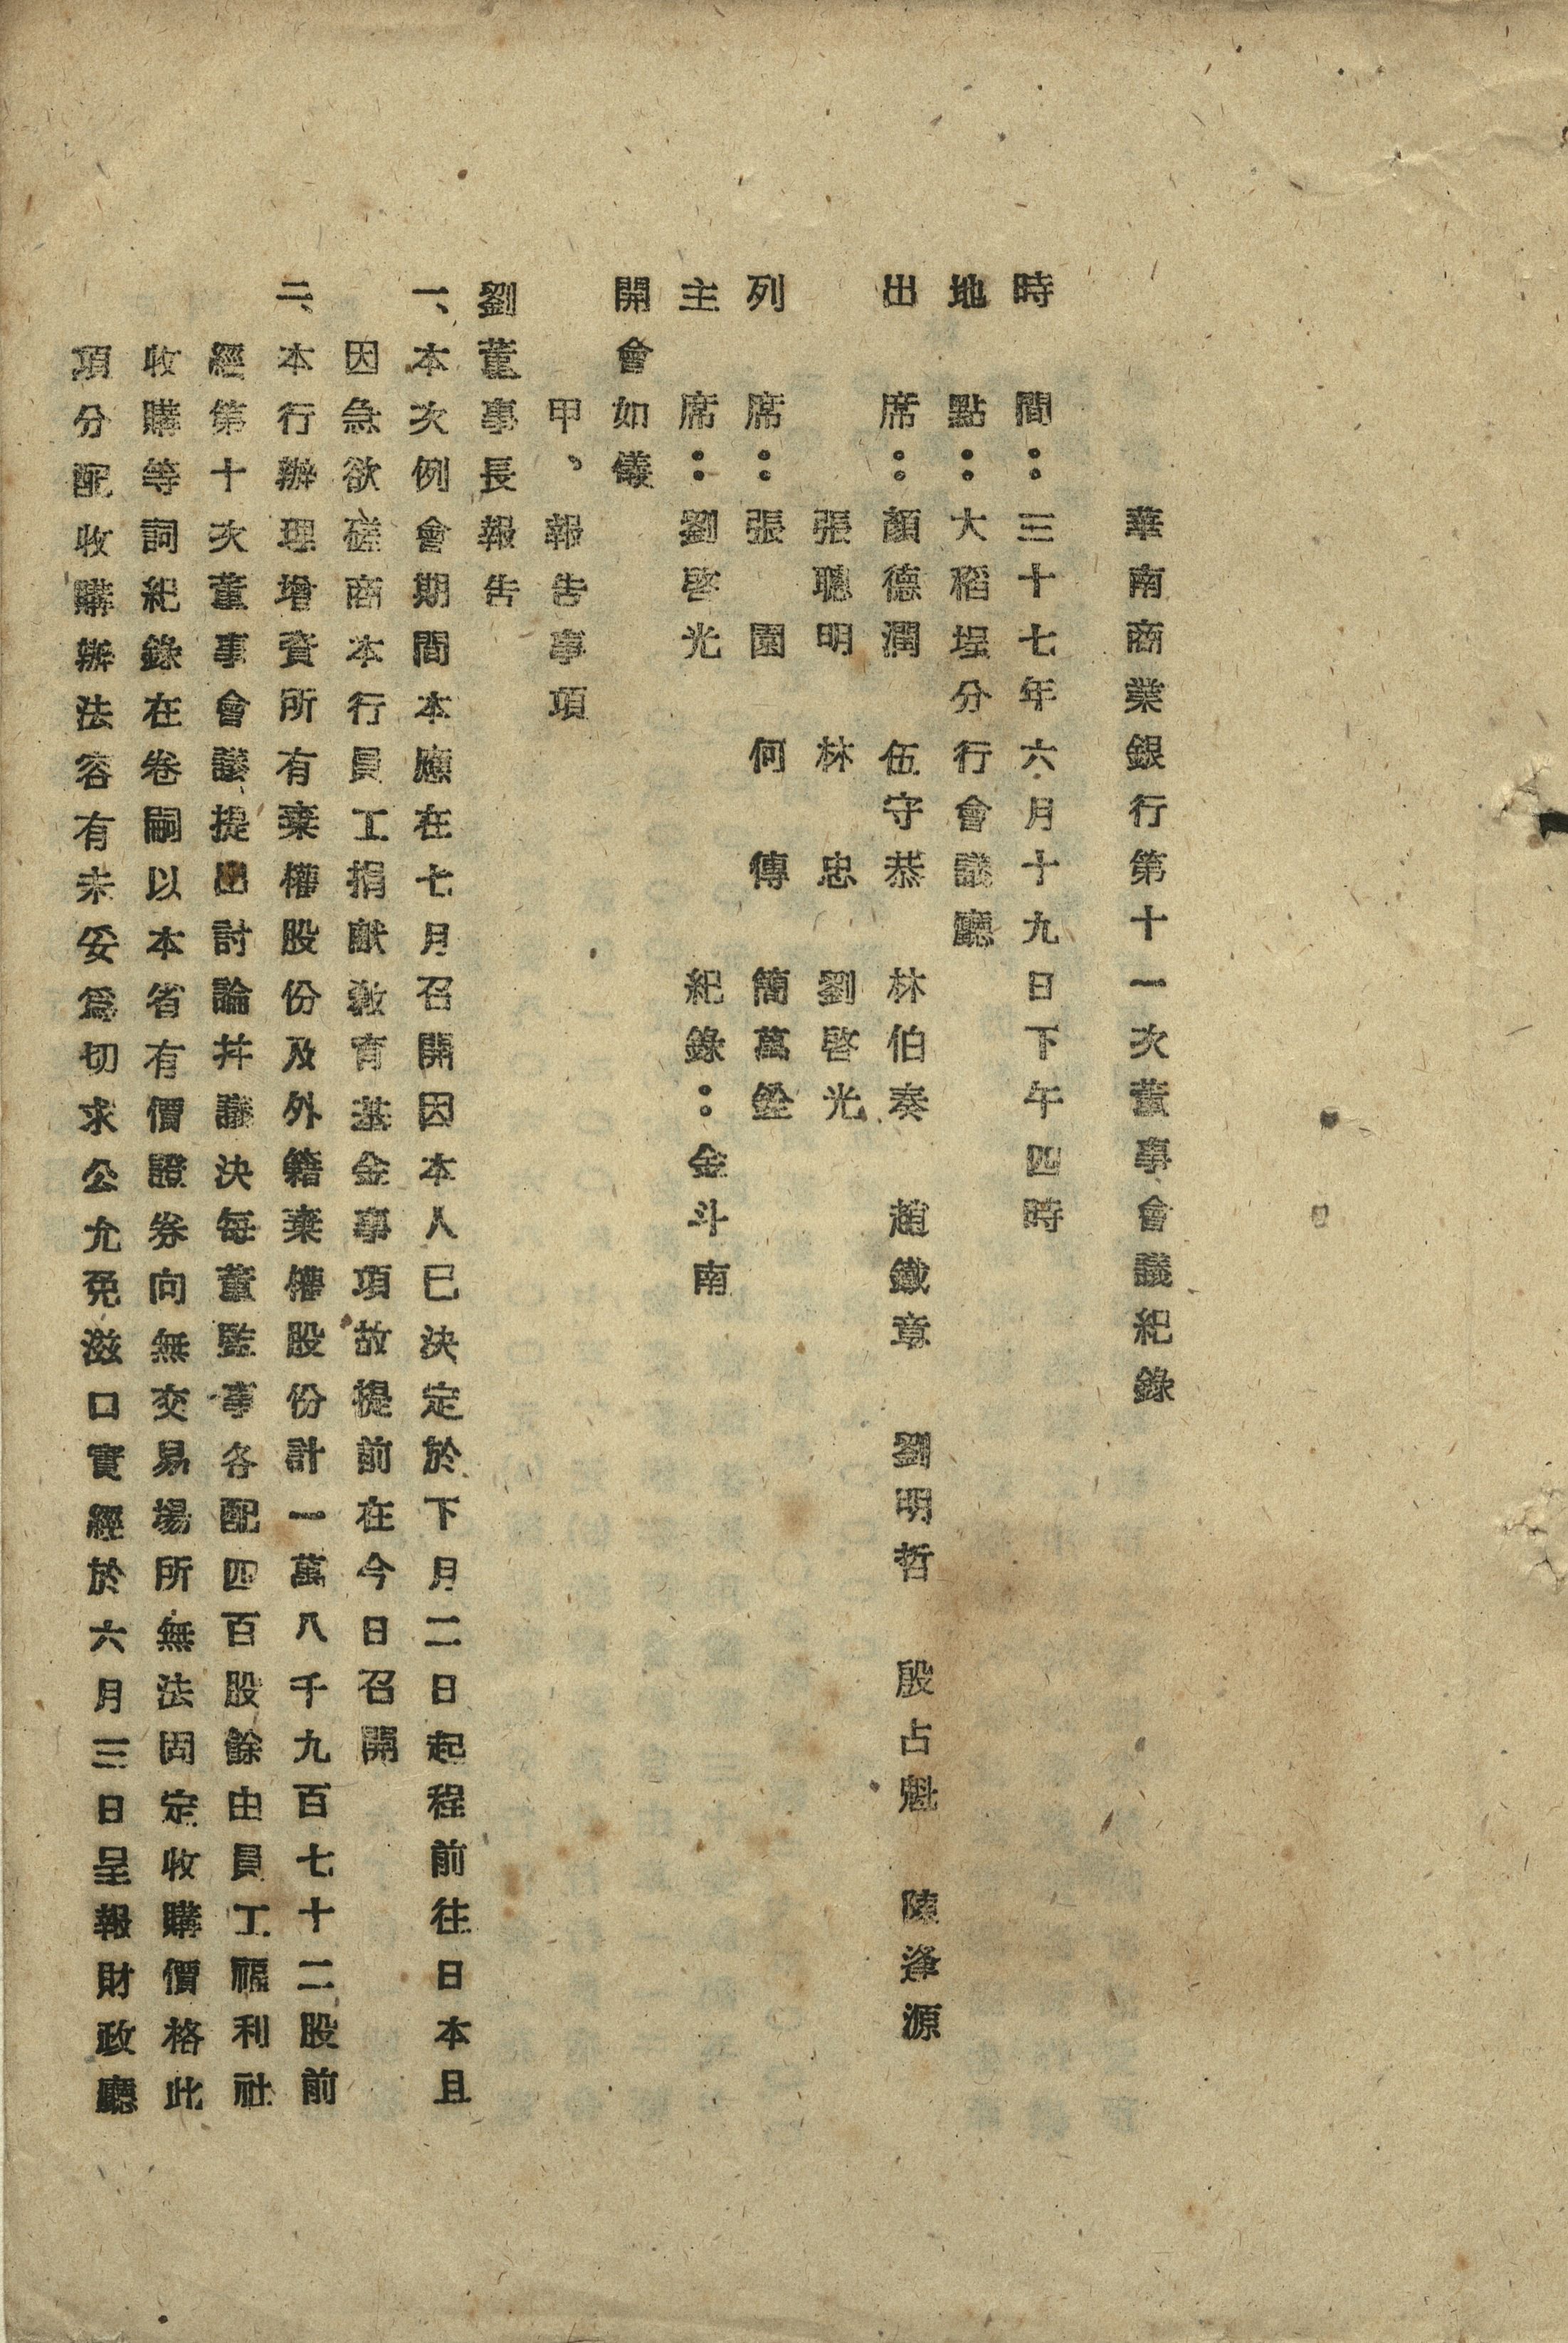 華南商業銀行第十一次董事會議紀錄
時間：三十七年六月十九日下午四時
地點：大稻埕分行會議廳
出席：顏德潤 伍守恭 林伯奏 趙鐵章 劉明哲 殷占魁 陳逢源
張聰明 林忠 劉啓光
列席：張園 何傳 簡萬銓
主席：劉啓光 紀錄：金斗南
開會如儀
甲、報告事項
劉董事長報告
一、本次例會期間本應在七月召開因本人已決定於下月二日起程前往日本且
因急欲磋商本行員工捐獻教育基金事項故提前在今日召開
二、本行辦理增資所有棄權股份及外籍棄權股份計一萬八千九百七十二股前
經第十次董事會議提出討論并議決每董監事各配四百股餘由員工福利社
收購等詞紀錄在卷嗣以本省有價證券向無交易場所無法固定收購價格此
項分配收購辦法容有未妥爲切求公允免滋口實經於六月三日呈報財政廳